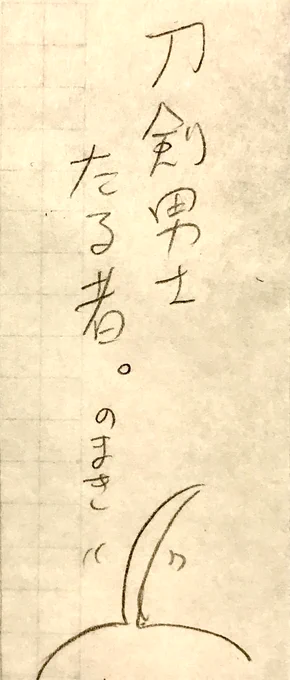 刀剣男士
たる者。のまき